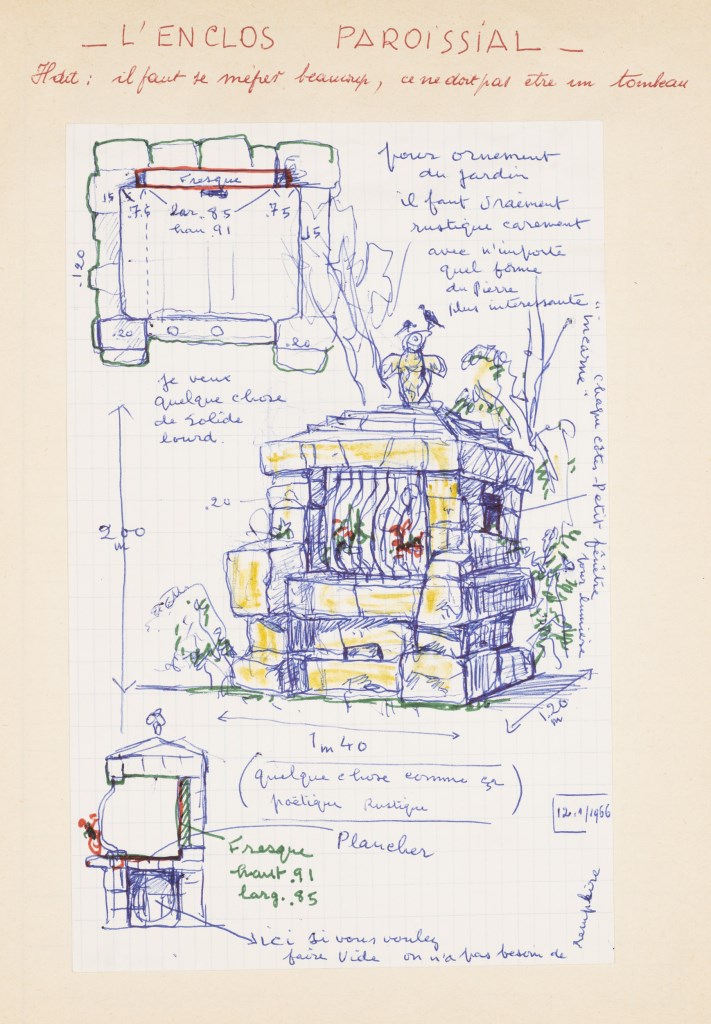 — L'ENCLOS PAROISSIAL —
il faut se méfier beaucoup, ce ne doit pas être un tombeau
Fresque
15
.75
Lar. 85
hau. 91
.75
15
.120
.20
.20
pour ornement
du Jardin
il faut vraiment
rustique carement
avec n'importe
quel forme
du Pierre
plus interessante
"incarné"
chaque côté - Petit fénêtre
pour lumière
je veux
quelque chose
de Solide
lourd.
.20
2m00
1m40
1m20
(quelque chose comme ça
poëtique Rustique)
12.1/1966
Fresque
haut .91
larg. .85
Plancher
ici si vous voulez
faire vide on n'a pas besoin de